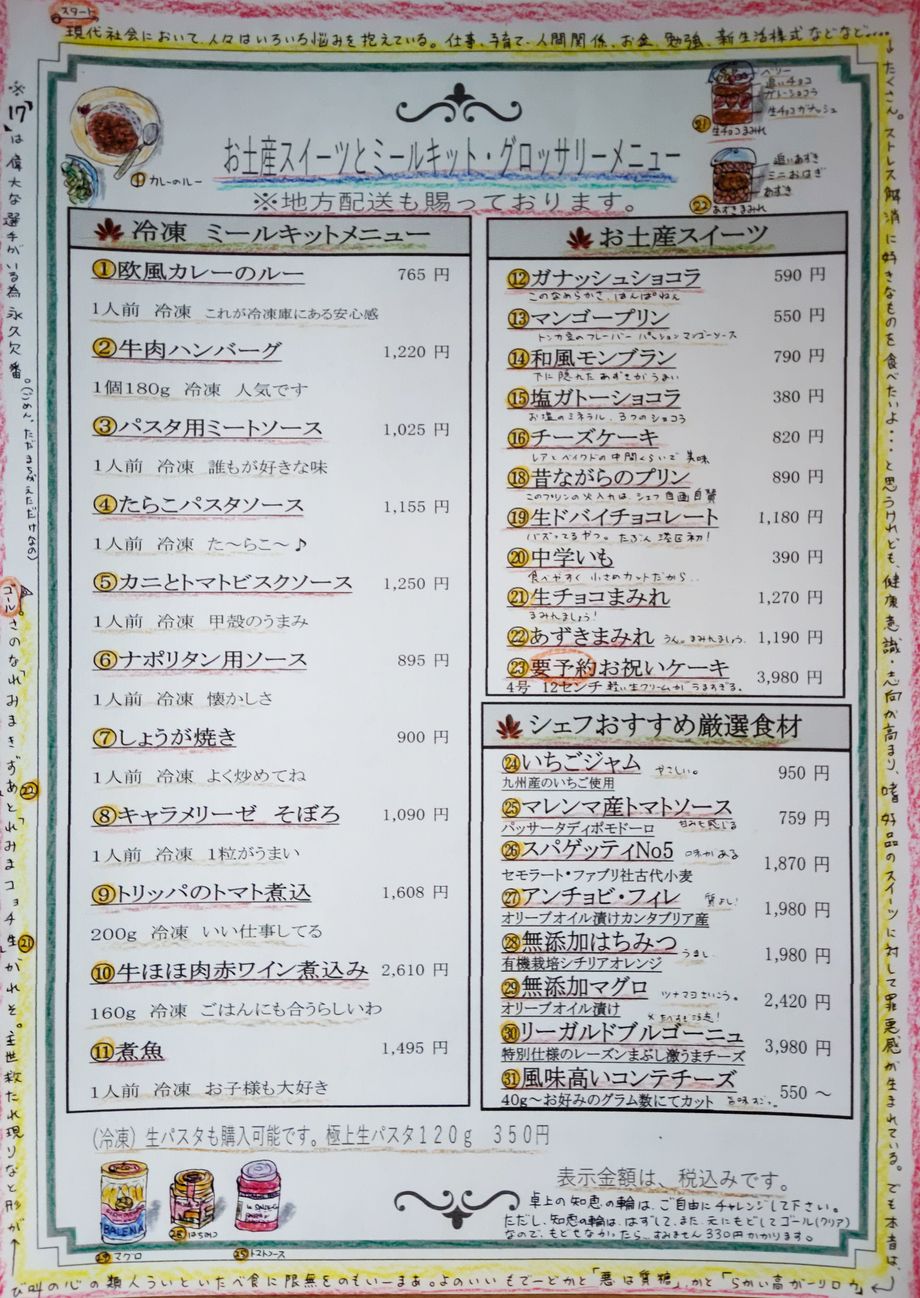 スタート
現代社会において、人々はいろいろ悩みを抱えている。仕事、子育て、人間関係、お金、勉強、新生活様式などなど....
たくさん。ストレス解消に好きなものを食べたいよ・・・と思うけれども、健康意識・志向が高まり、嗜好品のスイーツに対して罪悪感が生まれている。でも本音は、
「カロリーが高いから」とか「糖質は悪」とかどーでもいいのよ。あまーいものを無限に食べたいという人類の心の叫び
が形となり現れた救世主。それが㉑「生チョコまみれ」と㉒「あずきまみれ」なのさ。
ゴール
※「17」は偉大な選手がいる為永久欠番。
(ごめん、ただまちがえただけなの)
① カレーのルー
ベリー
追いチョコ
ガトーショコラ
生チョコガナッシュ
㉑
生チョコまみれ
追いあずき
ミニおはぎ
あずき
㉒
あずきまみれ
お土産スイーツとミールキット・グロッサリーメニュー
※地方配送も賜っております。
冷凍 ミールキットメニュー
①欧風カレーのルー 765 円
1人前 冷凍 これが冷凍庫にある安心感
②牛肉ハンバーグ 1,220 円
1個180g 冷凍 人気です
③パスタ用ミートソース 1,025 円
1人前 冷凍 誰もが好きな味
④たらこパスタソース 1,155 円
1人前 冷凍 た～らこ～♪
⑤カニとトマトビスクソース 1,250 円
1人前 冷凍 甲殻のうまみ
⑥ナポリタン用ソース 895 円
1人前 冷凍 懐かしさ
⑦しょうが焼き 900 円
1人前 冷凍 よく炒めてね
⑧キャラメリーゼ そぼろ 1,090 円
1人前 冷凍 1粒がうまい
⑨トリッパのトマト煮込 1,608 円
200g 冷凍 いい仕事してる
⑩牛ほほ肉赤ワイン煮込み 2,610 円
160g 冷凍 ごはんにも合うらしいわ
⑪煮魚 1,495 円
1人前 冷凍 お子様も大好き
お土産スイーツ
⑫ガナッシュショコラ 590 円
このなめらかさ、はんぱねぇ
⑬マンゴープリン 550 円
トンカ豆のフレーバー パッションマンゴーソース
⑭和風モンブラン 790 円
下に隠れたあずきがうまい
⑮塩ガトーショコラ 380 円
お塩のミネラル、3つのショコラ
⑯チーズケーキ 820 円
レアとベイクドの中間くらいで美味
⑱昔ながらのプリン 890 円
このプリンの火入れは、シェフ自画自賛
⑲生ドバイチョコレート 1,180 円
バズってるやつ。たぶん港区初!
⑳中学いも 390 円
食べやすく小さめカットだから..
㉑生チョコまみれ 1,270 円
まみれましょう!
㉒あずきまみれ うん。まみれましょう. 1,190 円
㉓要予約お祝いケーキ 3,980 円
4号 12センチ 軽い生クリームがうますぎる。
シェフおすすめ厳選食材
㉔いちごジャム やさしい。 950 円
九州産のいちご使用
㉕マレンマ産トマトソース 759 円
パッサータディポモドーロ 甘みも感じる
㉖スパゲッティNo5 味がある 1,870 円
セモラート・ファブリ社古代小麦
㉗アンチョビ・フィレ 質よし! 1,980 円
オリーブオイル漬けカンタブリア産
㉘無添加はちみつ うまし 1,980 円
有機栽培シチリアオレンジ
㉙無添加マグロ ツナマヨさいこう。 2,420 円
オリーブオイル漬け ※たべすぎ注意!
㉚リーガルドブルゴーニュ 3,980 円
特別仕様のレーズンまぶし激うまチーズ
㉛風味高いコンテチーズ 550 ～
40g～お好みのグラム数にてカット 旨味すごっ。
(冷凍)生パスタも購入可能です。極上生パスタ120g 350円
表示金額は、税込みです。
卓上の知恵の輪は、ご自由にチャレンジして下さい。
ただし、知恵の輪は、はずして、また、元にもどしてゴール(クリア)
なので、もどせなかったら、すみません330円かかります。
BALENA
㉙マグロ
㉘はちみつ
㉕トマトソース